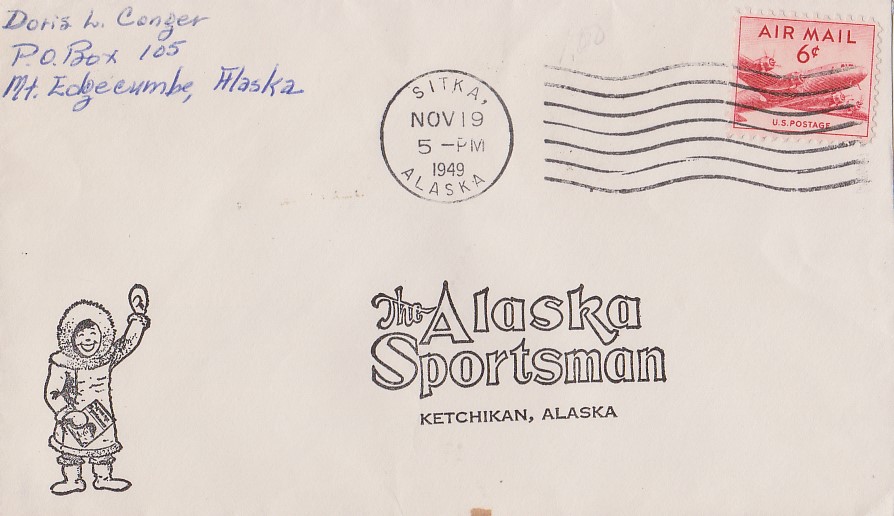 Doris L. Conger
P.O. Box 105
Mt. Edgecumbe, Alaska
1.00
SITKA,
NOV 19
5 -PM
1949
ALASKA
AIR MAIL
6¢
U.S. POSTAGE
The Alaska
Sportsman
KETCHIKAN, ALASKA